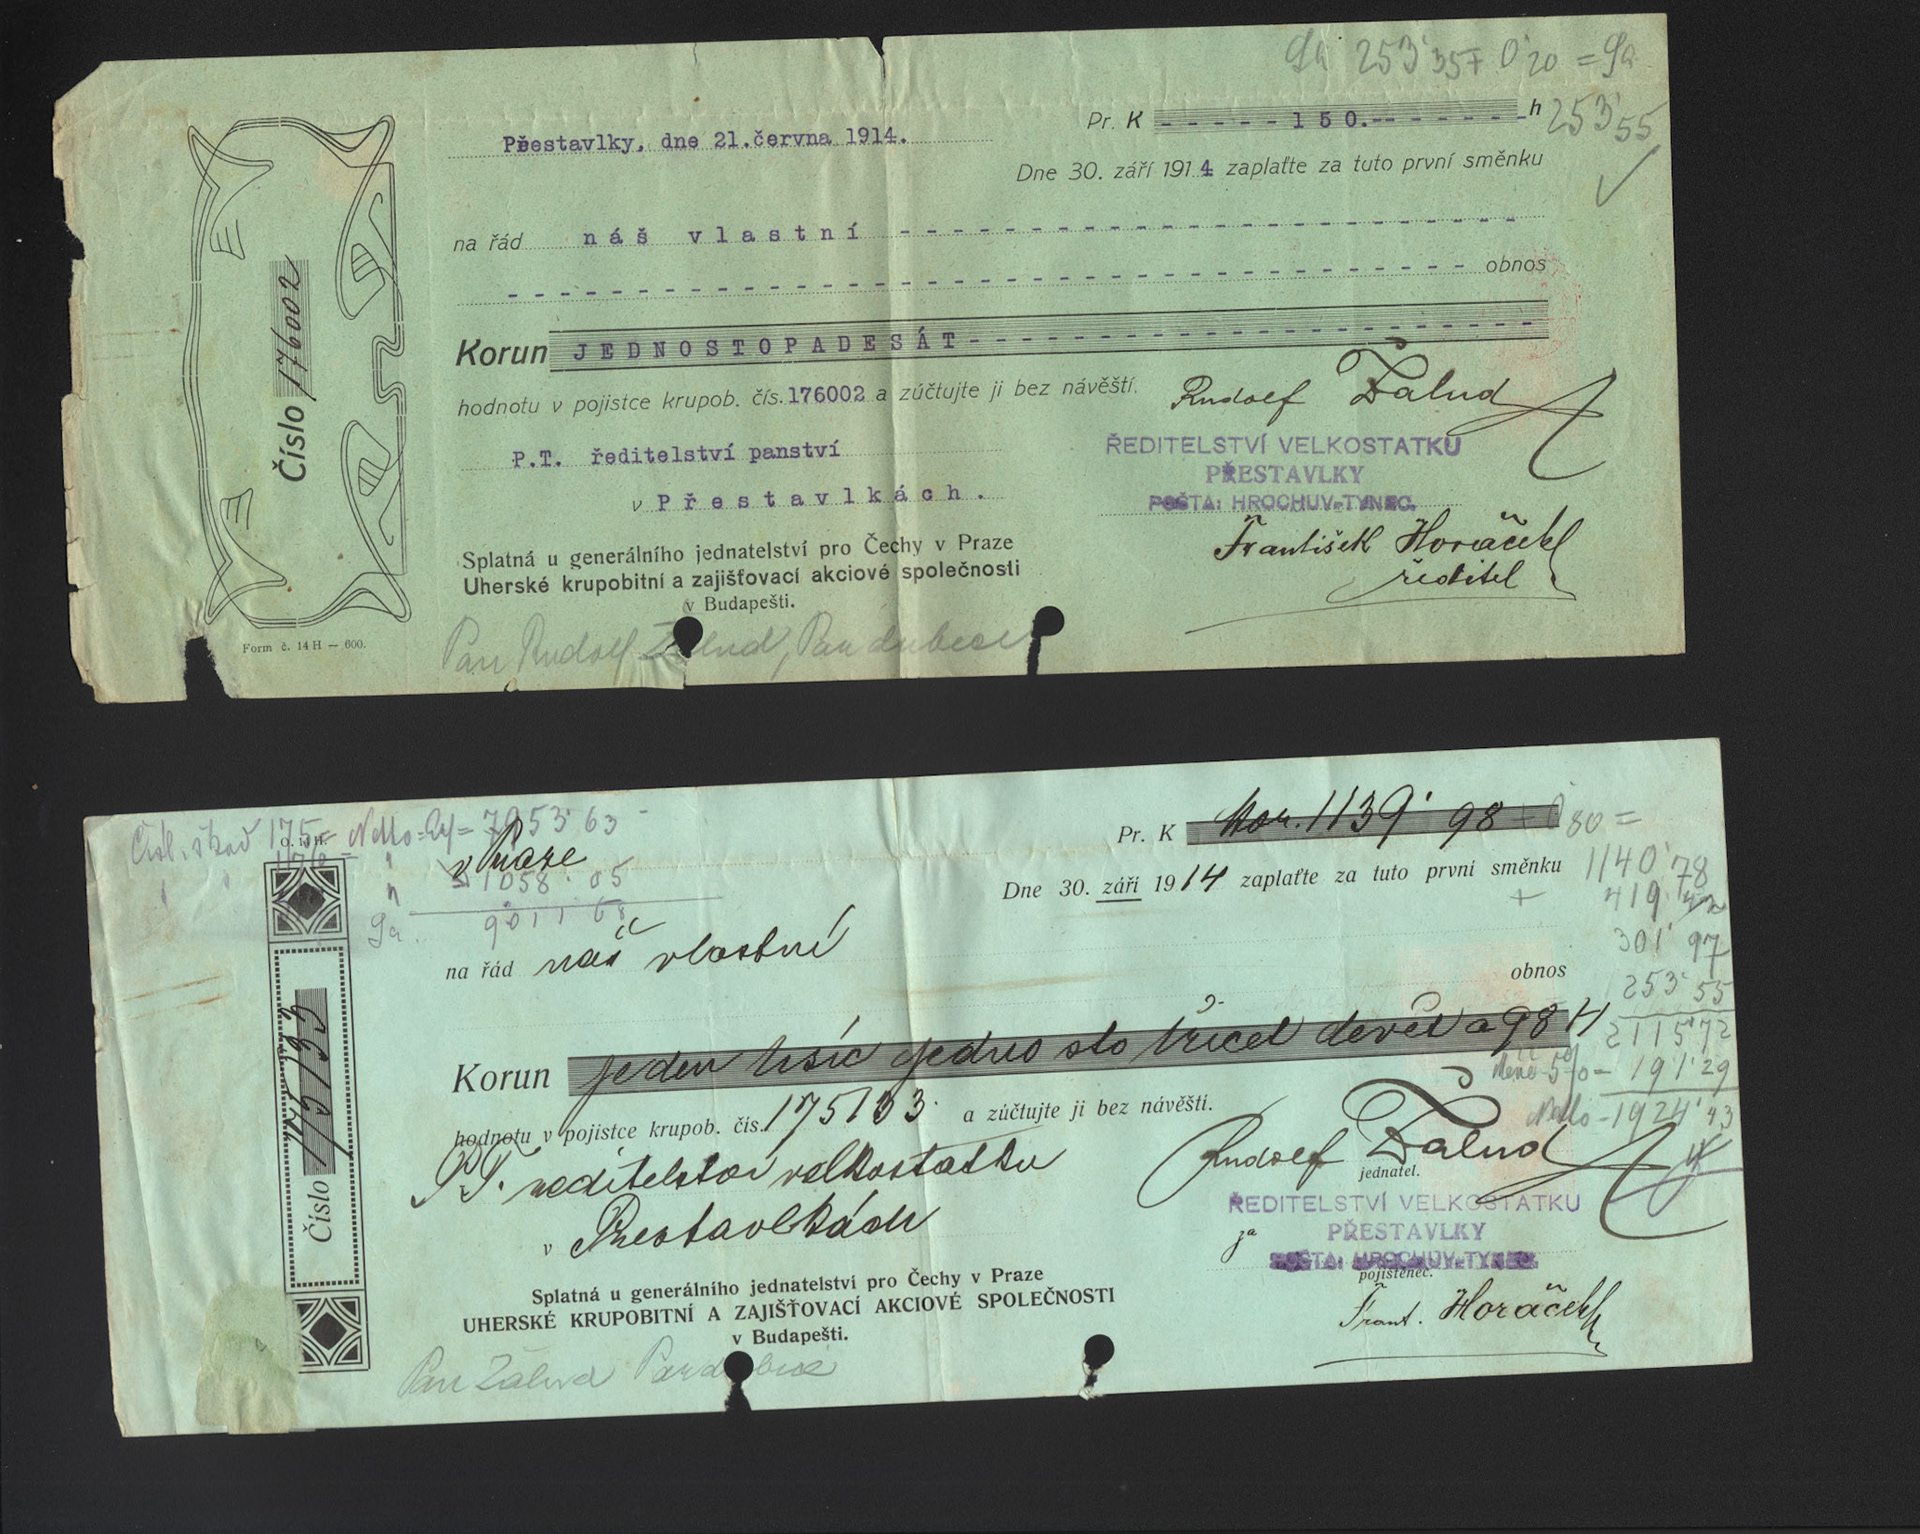 253'35+ 0'20 =
253'55
Pr. K - - - - - 150.-- - - - - - h
Přestavlky, dne 21.června 1914.
Dne 30. září 1914 zaplaťte za tuto první směnku
na řád náš vlastní - - - - - - - - - - - - - - - - - - - - - - - -
- - - - - - - - - - - - - - - - - - - - - - - - - - - - - - - - - - - - - - obnos
Korun JEDNOSTOPADESÁT- - - - - - - - - - - - - - - - - - - - - - -
hodnotu v pojistce krupob. čís. 176002 a zúčtujte ji bez návěští.
Rudolf Žalud
P.T. ředitelství panství
v Přestavlkách.
ŘEDITELSTVÍ VELKOSTATKU
PŘESTAVLKY
POŠTA: HROCHUV-TYNEC.
František Horáček
ředitel
Splatná u generálního jednatelství pro Čechy v Praze
Uherské krupobitní a zajišťovací akciové společnosti
v Budapešti.
Pan Rudolf Žalud, Pardubice
Číslo 176002
Form č. 14 H — 600.
Čísl. škod 175 - Netto = 7953'63 -
1058.05
9011 68
v Praze
Pr. K Kor. 1139' 98 + 0'80 =
Dne 30. září 1914 zaplaťte za tuto první směnku
1140'78
+ 419'42
301'97
253'55
2115'72
Méně 5% - 191'29
Netto - 1924'43
na řád náš vlastní
obnos
Korun jeden tisíc jedno sto třicet devět a 98 H
hodnotu v pojistce krupob. čís. 175133 a zúčtujte ji bez návěští.
P.T. ředitelství velkostatku
v Přestavlkách
Rudolf Žalud
jednatel.
ŘEDITELSTVÍ VELKOSTATKU
za PŘESTAVLKY
POŠTA: HROCHUV-TYNEC.
pojištěnec.
Frant. Horáček
Splatná u generálního jednatelství pro Čechy v Praze
UHERSKÉ KRUPOBITNÍ A ZAJIŠŤOVACÍ AKCIOVÉ SPOLEČNOSTI
v Budapešti.
Pan Žalud Pardubice
Číslo 175133